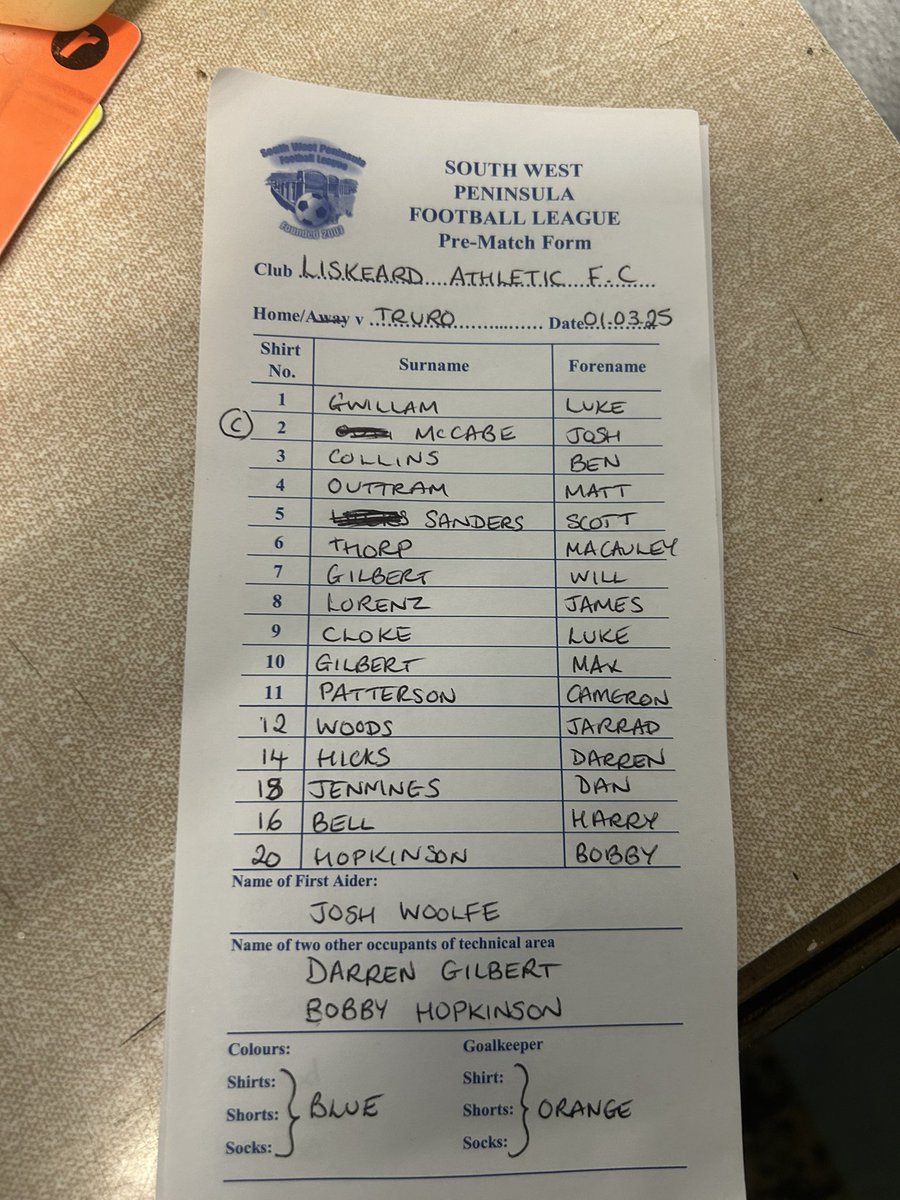 r
South West Peninsula
Football League
Founded 2007
SOUTH WEST
PENINSULA
FOOTBALL LEAGUE
Pre-Match Form
Club LISKEARD ATHLETIC F.C
Home/Away v TRURO Date 01.03.25
Shirt No. Surname Forename
1 GWILLAM LUKE
C 2 MCCABE JOSH
3 COLLINS BEN
4 OUTTRAM MATT
5 SANDERS SCOTT
6 THORP MACAULEY
7 GILBERT WILL
8 LORENZ JAMES
9 CLOKE LUKE
10 GILBERT MAX
11 PATTERSON CAMERON
12 WOODS JARRAD
14 HICKS DARREN
18 JENNINGS DAN
16 BELL HARRY
20 HOPKINSON BOBBY
Name of First Aider:
JOSH WOOLFE
Name of two other occupants of technical area
DARREN GILBERT
BOBBY HOPKINSON
Colours: Goalkeeper
Shirts: Shirt:
Shorts: BLUE Shorts: ORANGE
Socks: Socks: